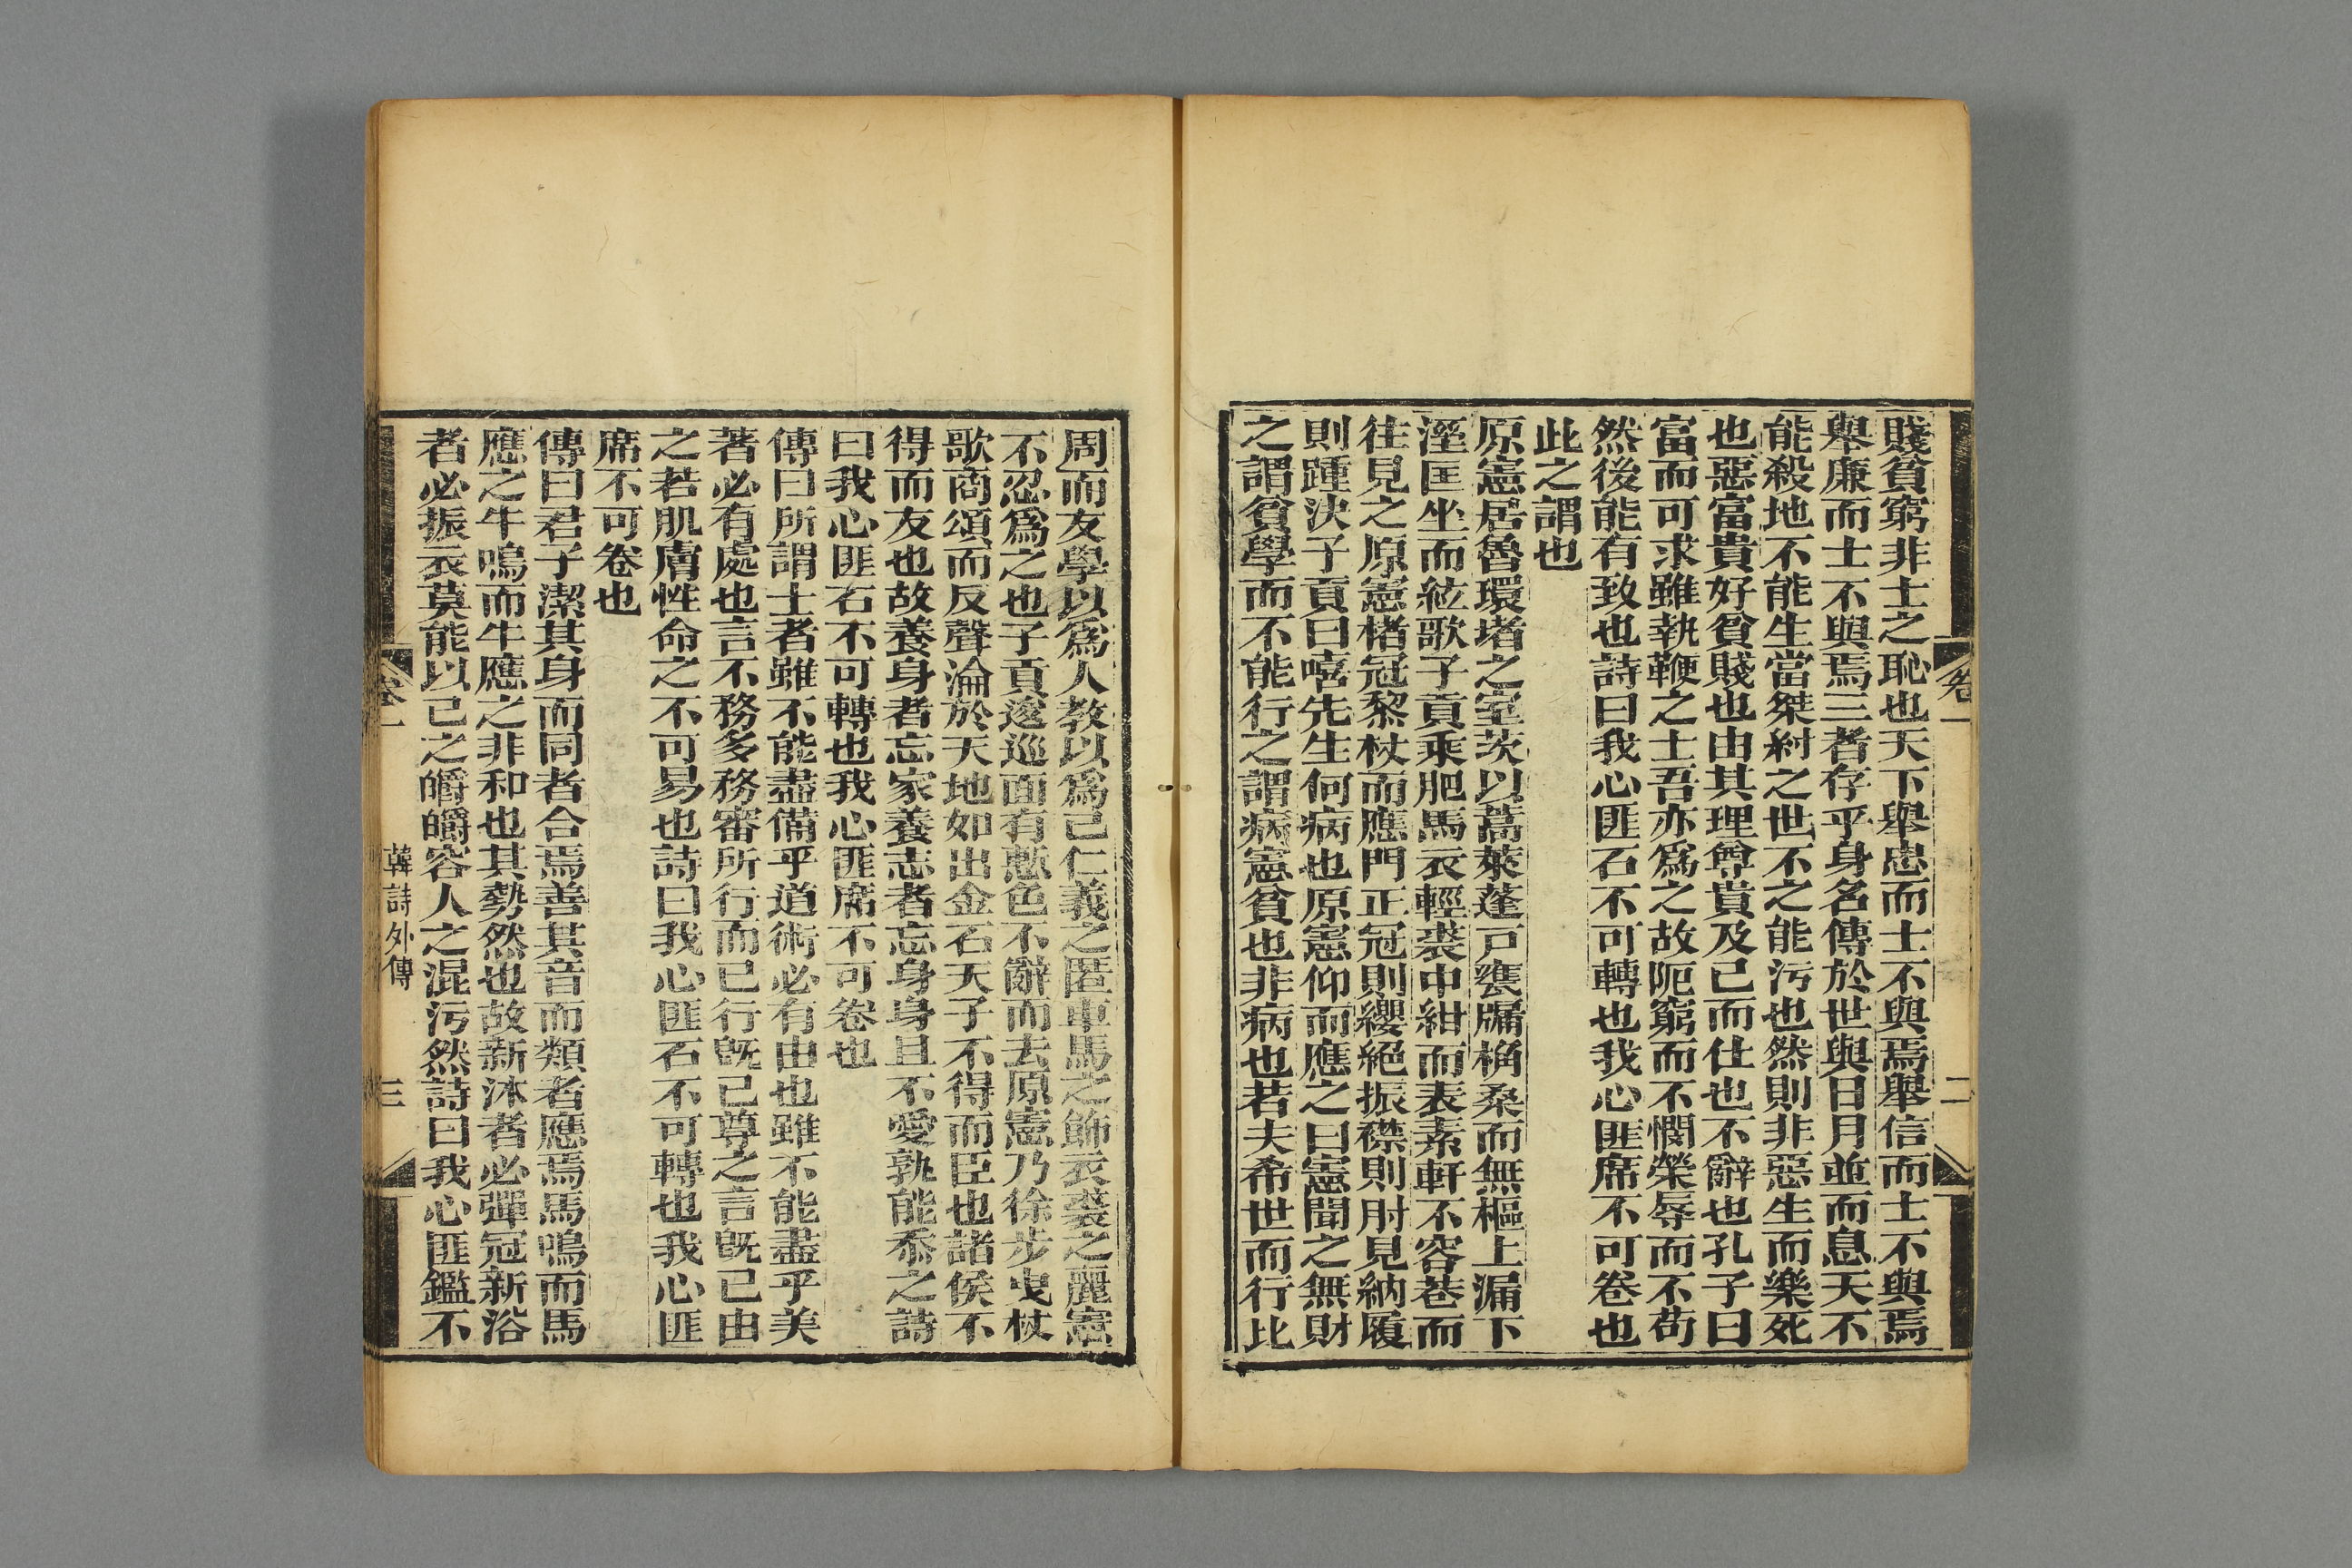 賤貧窮非士之恥也天下舉忠而士不與焉舉信而士不與焉
舉廉而士不與焉三者存乎身名傳於世與日月並而息天不
能殺地不能生當桀紂之世不之能污也然則非惡生而樂死
也惡富貴好貧賤也由其理尊貴及已而仕也不辭也孔子曰
富而可求雖執鞭之士吾亦爲之故阨窮而不憫榮辱而不苟
然後能有致也詩曰我心匪石不可轉也我心匪席不可卷也
此之謂也
原憲居魯環堵之室茨以蒿萊蓬戸甕牖桷桑而無樞上漏下
溼匡坐而絃歌子貢乘肥馬衣輕裘中紺而表素軒不容巷而
往見之原憲楮冠黎杖而應門正冠則纓絕振襟則肘見納履
則踵決子貢曰嘻先生何病也原憲仰而應之曰憲聞之無財
之謂貧學而不能行之謂病憲貧也非病也若夫希世而行比
卷一
二
周而友學以爲人教以爲己仁義之匿車馬之飾衣裘之麗憲
不忍爲之也子貢逡巡面有慙色不辭而去原憲乃徐步曳杖
歌商頌而反聲淪於天地如出金石天子不得而臣也諸侯不
得而友也故養身者忘家養志者忘身身且不愛孰能忝之詩
曰我心匪石不可轉也我心匪席不可卷也
傳曰所謂士者雖不能盡備乎道術必有由也雖不能盡乎美
著必有處也言不務多務審所行而已行旣已尊之言旣已由
之若肌膚性命之不可易也詩曰我心匪石不可轉也我心匪
席不可卷也
傳曰君子潔其身而同者合焉善其音而類者應焉馬鳴而馬
應之牛鳴而牛應之非和也其勢然也故新沐者必彈冠新浴
者必振衣莫能以己之皭皭容人之混污然詩曰我心匪鑑不
卷一
韓詩外傳
三